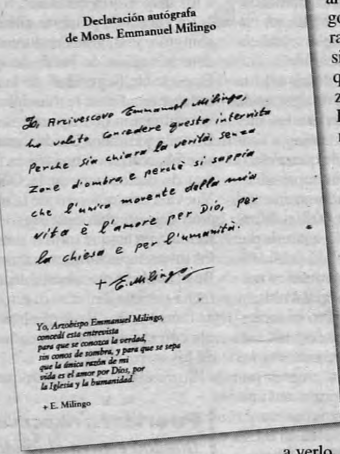 Declaración autógrafa
de Mons. Emmanuel Milingo
Io, Arcivescovo Emmanuel Milingo,
ho voluto concedere questa intervista
perchè sia chiara la verità, senza
zone d'ombra, e perchè si sappia
che l'unica movente della mia
vita è l'amore per Dio, per
la chiesa e per l'umanità.
+ E. Milingo
Yo, Arzobispo Emmanuel Milingo,
concedí esta entrevista
para que se conozca la verdad,
sin conos de sombra, y para que se sepa
que la única razón de mi
vida es el amor por Dios, por
la Iglesia y la humanidad.
+ E. Milingo
a verlo